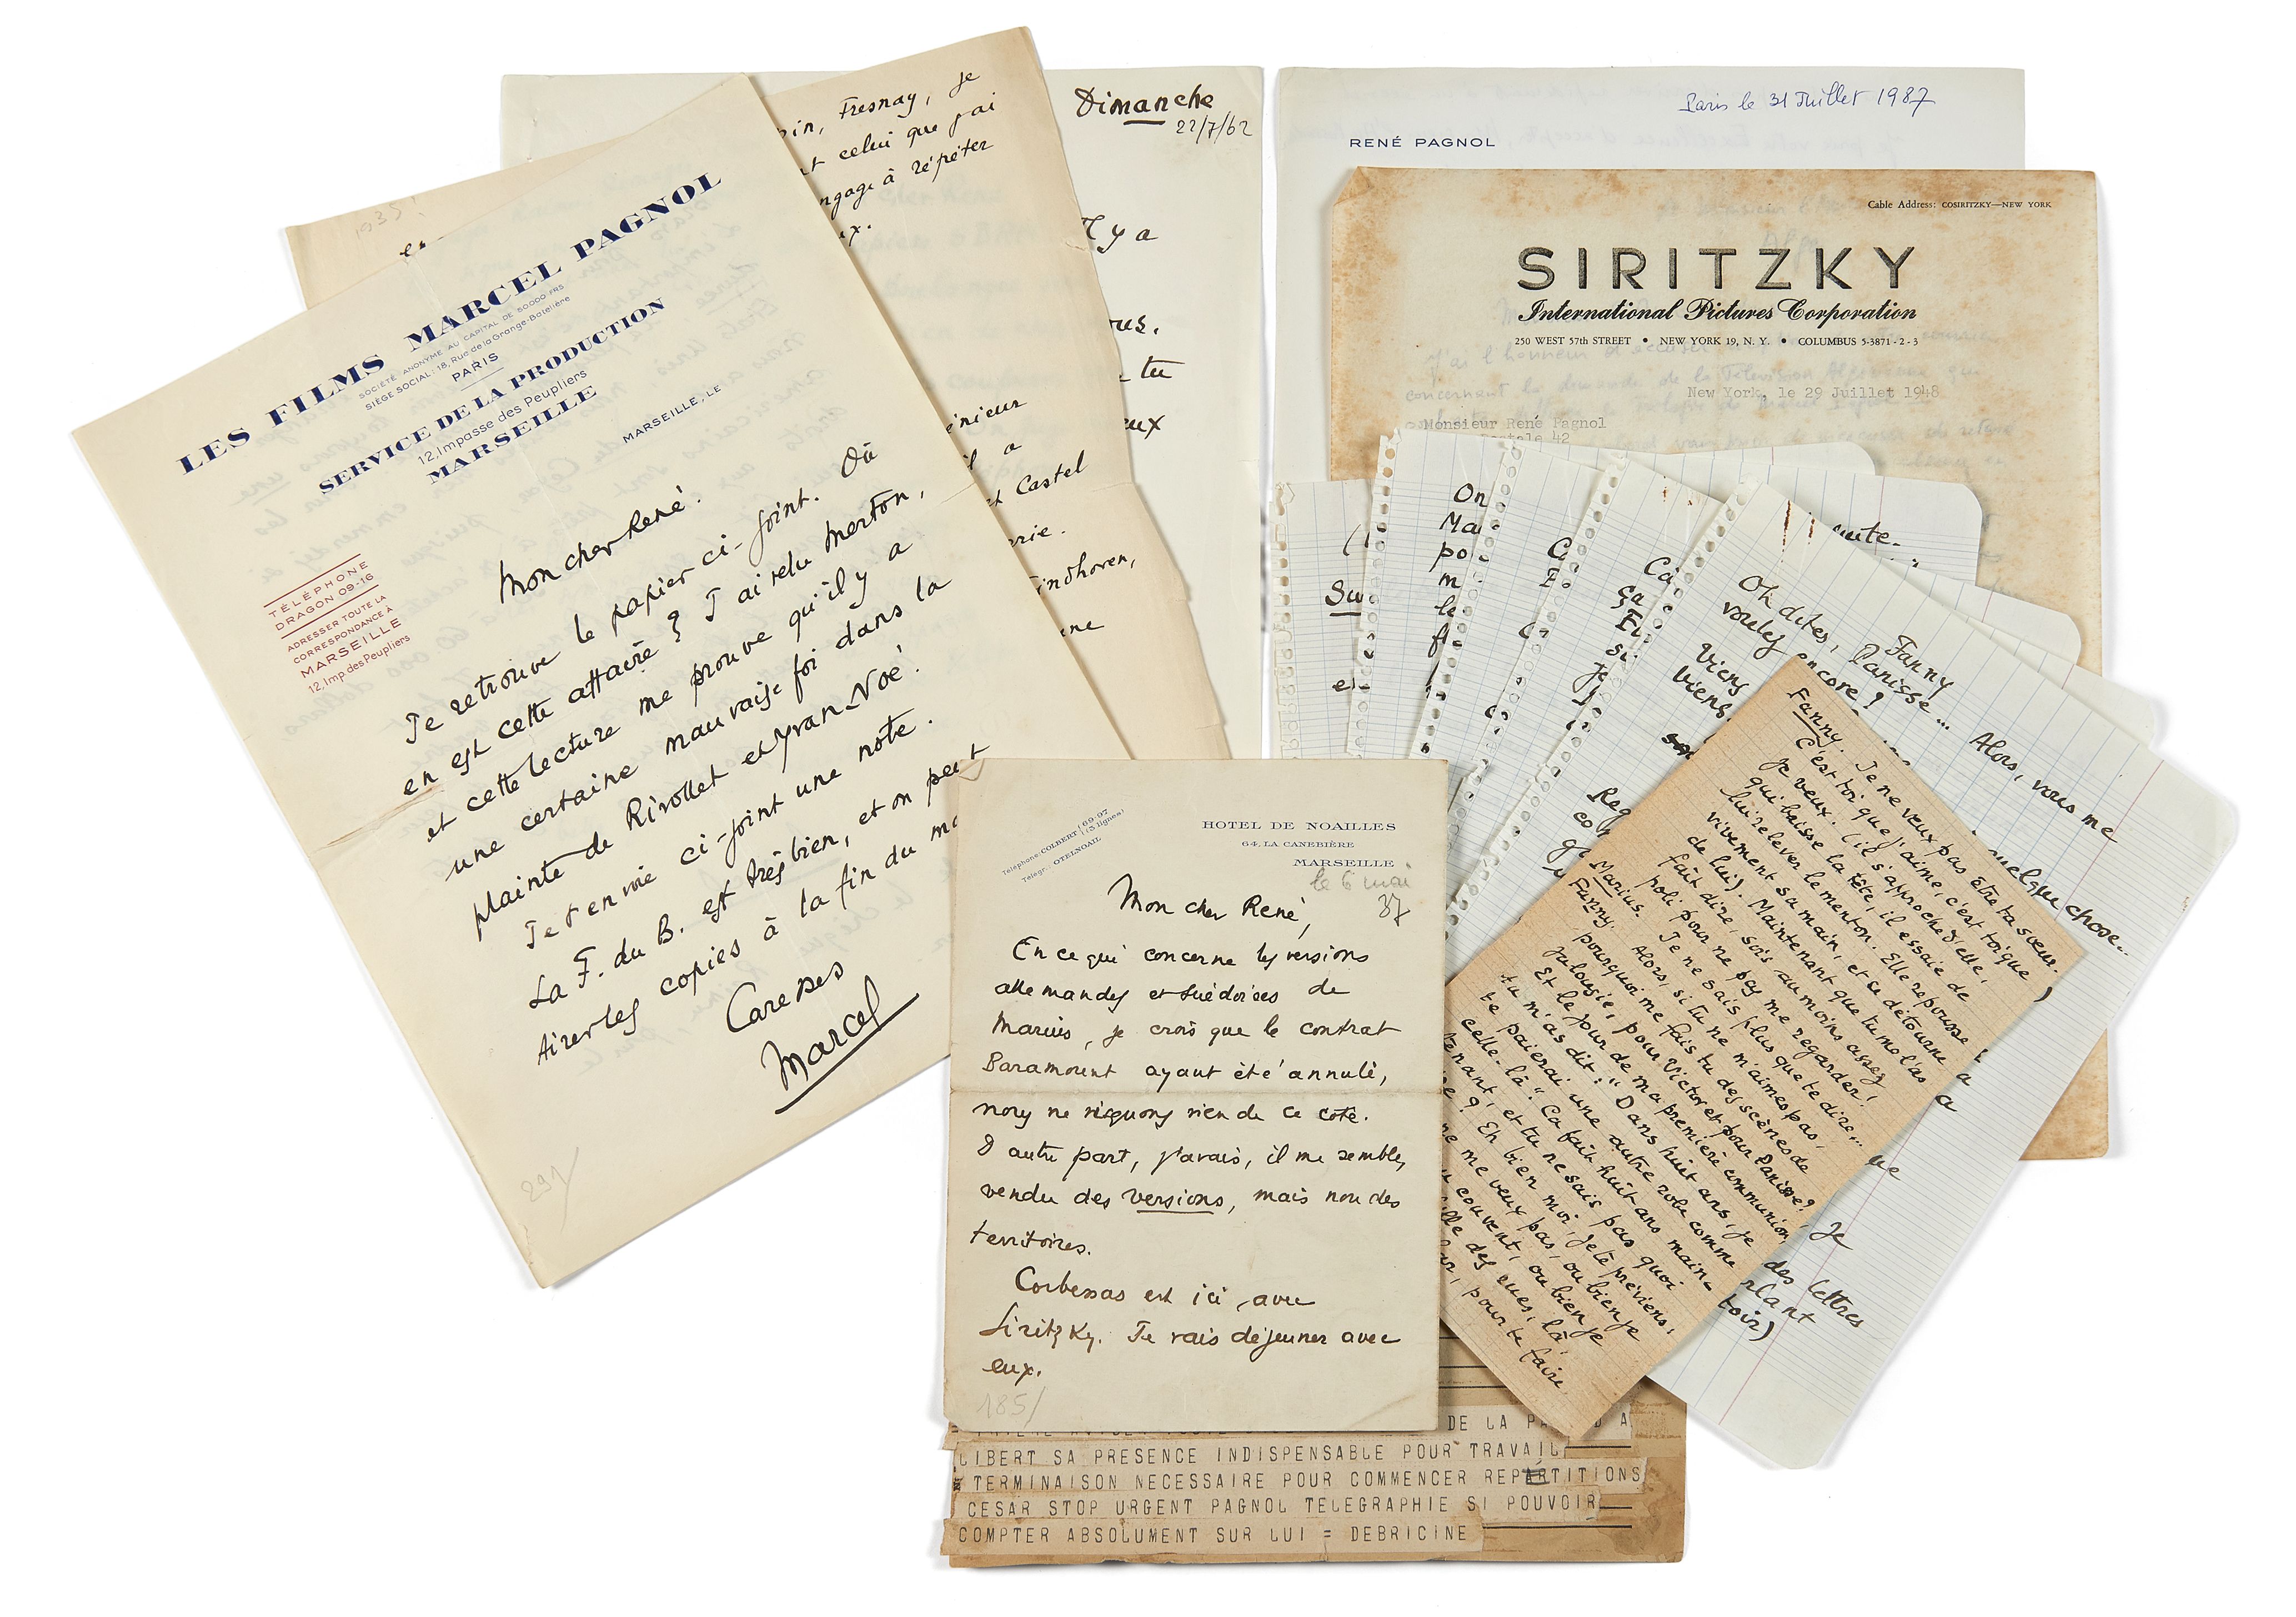 LES FILMS MARCEL PAGNOL
SOCIÉTÉ ANONYME AU CAPITAL DE 50.000 FRS
SIÈGE SOCIAL: 18, Rue de la Grange-Batelière
PARIS
SERVICE DE LA PRODUCTION
12, Impasse des Peupliers
MARSEILLE
MARSEILLE, LE
TÉLÉPHONE
DRAGON 09-16
ADRESSER TOUTE LA
CORRESPONDANCE À
MARSEILLE
12, Imp des Peupliers
Mon cher René.
Je retrouve le papier ci-joint. Où
en est cette affaire ? J'ai relu Merton,
et cette lecture me prouve qu'il y a
une certaine mauvaise foi dans la
plainte de Rivollet et Yvan Noé.
Je t'envoie ci-joint une note.
La F. du B. est très bien, et on peut
tirer les copies à la fin du
Caresses
Marcel
291/
1935?
Fresnay, je
celui que j'ai
ngage à répéter
ux.
érieur
il a
et Castel
rie.
indhoven,
une
Dimanche
22/7/62
Il y a
ous.
tu
eux
Paris le 31 Juillet 1987
RENÉ PAGNOL
Cable Address: COSIRITZKY—NEW YORK
SIRITZKY
International Pictures Corporation
250 WEST 57th STREET • NEW YORK 19, N. Y. • COLUMBUS 5-3871 - 2 - 3
New York, le 29 Juillet 1948
Monsieur René Pagnol
Postale 42
On
Ma
po
m
le
Ca
ça
si
Je
Fanny
Oh dites, Panisse... Alors, vous me
voulez encore ?
Viens
viens
quelque chose...
Je
des lettres
parlant
Fanny. Je ne veux pas être ta sœur.
C'est toi que j'aime, c'est toi que
je veux. (il s'approche d'elle,
qui baisse la tête, il essaie de
lui relever le menton. Elle repousse
vivement sa main, et se détourne
de lui). Maintenant que tu me l'as
fait dire, sois au moins assez
poli pour ne pas me regarder.
Marius. Je ne sais plus que te dire...
Fanny. Alors, si tu ne m'aimes pas,
pourquoi me fais tu des scènes de
jalousie, pour Victor et pour Panisse ?
Et le jour de ma première communion,
tu m'as dit : " Dans huit ans, je
te paierai une autre robe comme
celle-là ". Ca fait huit ans main-
tenant, et tu ne sais pas quoi
? Eh bien moi, je te préviens,
me veux pas, ou bien je
couvent, ou bien je
fille des rues, là,
pour te faire
Téléphone: COLBERT 69-97 (3 lignes)
Télégr. OTELNOAIL
HOTEL DE NOAILLES
64, LA CANEBIÈRE
MARSEILLE
le 6 mai
37
Mon cher René,
En ce qui concerne les versions
allemandes et suédoises de
Marius, je crois que le contrat
Paramount ayant été annulé,
nous ne risquons rien de ce coté.
D'autre part, j'avais, il me semble,
vendu des versions, mais non des
territoires.
Corbessas est ici, avec
Siritzky. Je vais déjeuner avec
eux.
185/
DE LA PA
LIBERT SA PRESENCE INDISPENSABLE POUR TRAVAIL
TERMINAISON NECESSAIRE POUR COMMENCER REPARTITIONS
CESAR STOP URGENT PAGNOL TELEGRAPHIE SI POUVOIR
COMPTER ABSOLUMENT SUR LUI = DEBRICINE